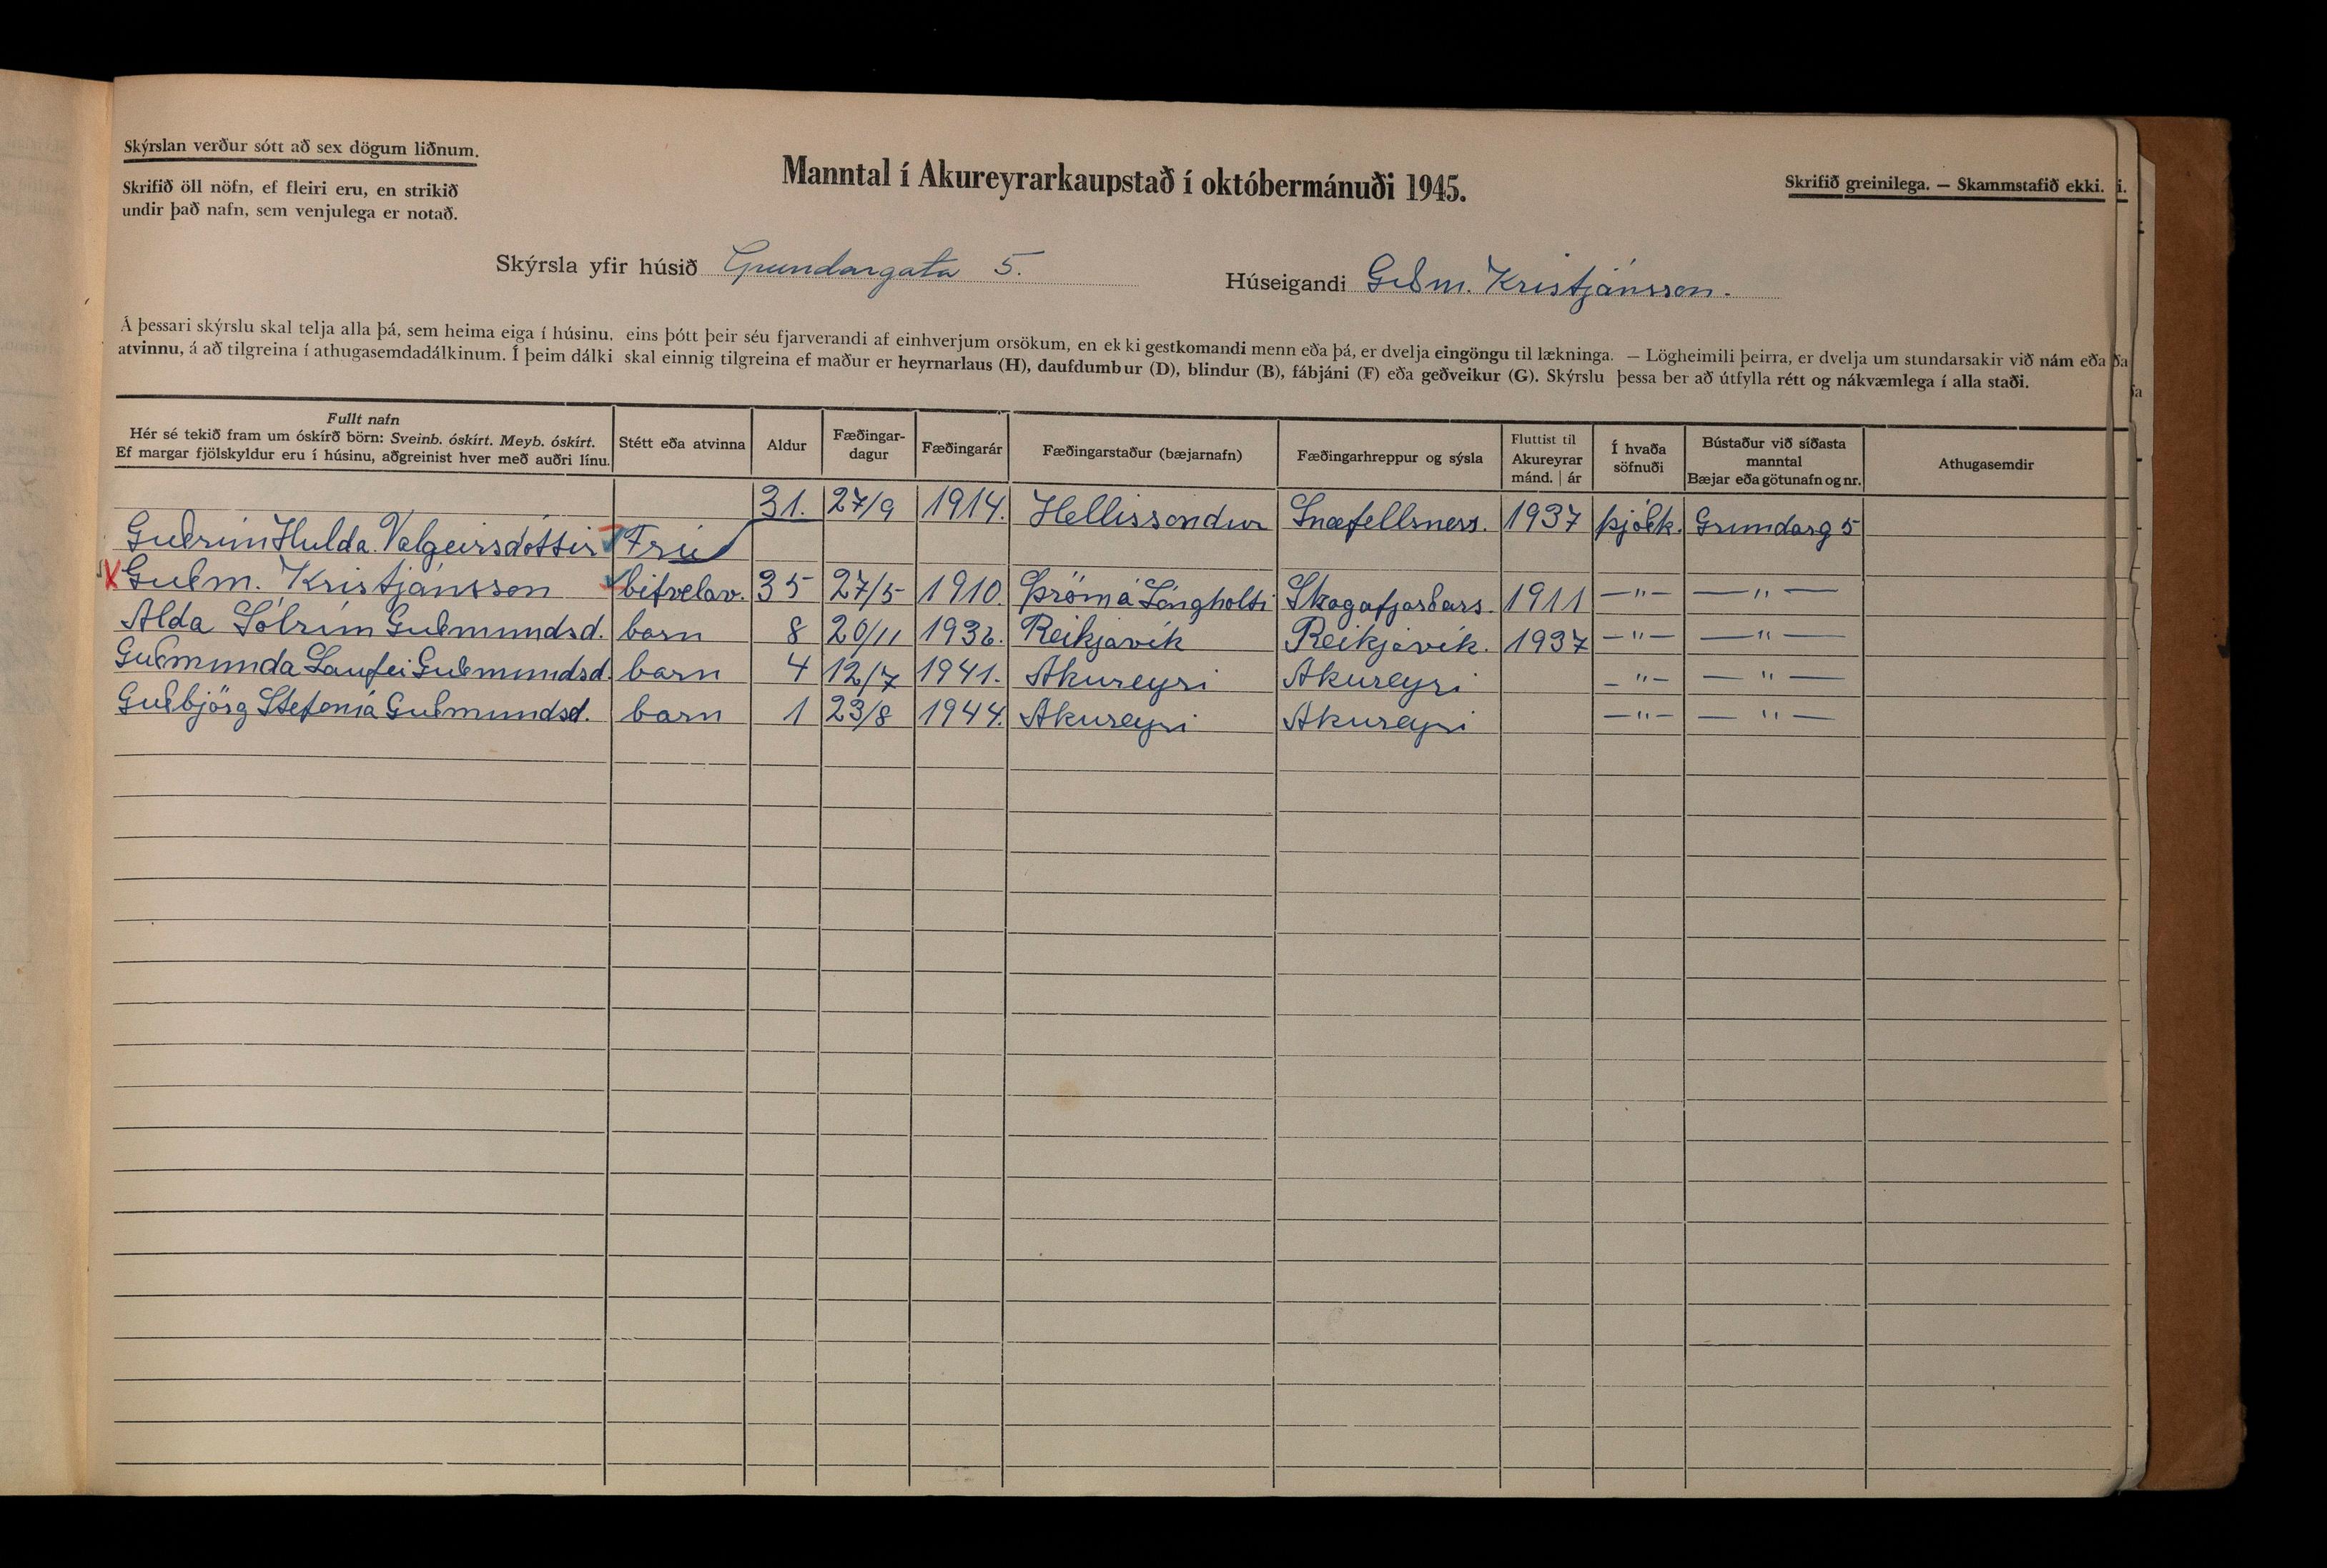 Skýrslan verður sótt að sex dögum liðnum.
Skrifið öll nöfn, ef fleiri eru, en strikið
undir það nafn, sem venjulega er notað.
Manntal í Akureyrarkaupstað í októbermánuði 1945.
Skrifið greinilega. — Skammstafið ekki.
Skýrsla yfir húsið Grundargata 5.
Húseigandi Guðm. Kristjánsson.
Á þessari skýrslu skal telja alla þá, sem heima eiga í húsinu, eins þótt þeir séu fjarverandi af einhverjum orsökum, en ekki gestkomandi menn eða þá, er dvelja eingöngu til lækninga. — Lögheimili þeirra, er dvelja um stundarsakir við nám eða
atvinnu, á að tilgreina í athugasemdadálkinum. Í þeim dálki skal einnig tilgreina ef maður er heyrnarlaus (H), daufdumbur (D), blindur (B), fábjáni (F) eða geðveikur (G). Skýrslu þessa ber að útfylla rétt og nákvæmlega í alla staði.
Fullt nafn
Hér sé tekið fram um óskírð börn: Sveinb. óskírt. Meyb. óskírt.
Ef margar fjölskyldur eru í húsinu, aðgreinist hver með auðri línu.
Stétt eða atvinna
Aldur
Fæðingar-
dagur
Fæðingarár
Fæðingarstaður (bæjarnafn)
Fæðingarhreppur og sýsla
Fluttist til
Akureyrar
mánd. | ár
Í hvaða
söfnuði
Bústaður við síðasta
manntal
Bæjar eða götunafn og nr.
Athugasemdir
Guðrún Hulda Valgeirsdóttir Frú 31. 27/9 1914. Hellissandur Snæfellsness. 1937 þjóðk. Grundarg 5
X Guðm. Kristjánsson bifvelav. 35 27/5 1910. Þröm á Lángholti Skagafjarðars. 1911 —"— —"—
Alda Sólrún Guðmundsd. barn 8 20/11 1936. Reikjavík Reikjavík. 1937 —"— —"—
Guðmunda Laufei Guðmundsd. barn 4 12/7 1941. Akureyri Akureyri —"— —"—
Guðbjörg Stefanía Guðmundsd. barn 1 23/8 1944. Akureyri Akureyri —"— —"—